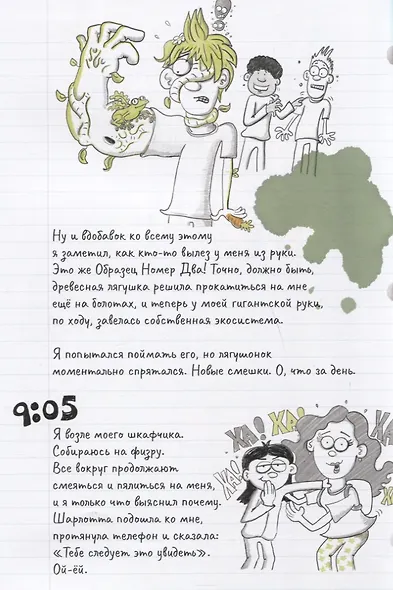 Ну и вдобавок ко всему этому
я заметил, как кто-то вылез у меня из руки.
Это же Образец Номер Два! Точно, должно быть,
древесная лягушка решила прокатиться на мне
ещё на болотах, и теперь у моей гигантской руки,
по ходу, завелась собственная экосистема.
Я попытался поймать его, но лягушонок
моментально спрятался. Новые смешки. О, что за день.
9:05
Я возле моего шкафчика.
Собираюсь на физру.
Все вокруг продолжают
смеяться и пялиться на меня,
и я только что выяснил почему.
Шарлотта подошла ко мне,
протянула телефон и сказала:
«Тебе следует это увидеть».
Ой-ёй.
ХА! ХА!
ХА!
ХА!